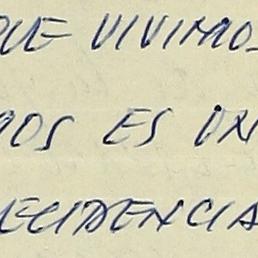 QUE VIVIMOS
DOS ES UN
ECIDENCIA